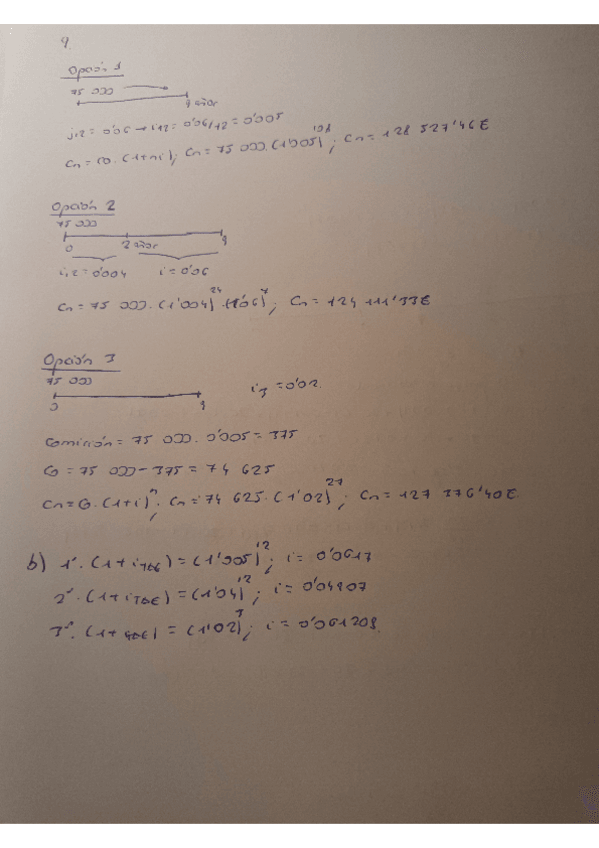 9.
Opción 1
75 000
9 años
j12 = 0'06 → i12 = 0'06/12 = 0'005
Cn = C0 · (1+ni); Cn = 75 000 · (1'005)^108; Cn = 128 527'46€
Opción 2
75 000
0 2 años 9
i12 = 0'004 i = 0'06
Cn = 75 000 · (1'004)^24 · (1'06)^7; Cn = 124 111'33€
Opción 3
75 000
0 9 i3 = 0'02.
Comisión = 75 000 · 0'005 = 375
C0 = 75 000 - 375 = 74 625
Cn = C0 · (1+i)^n; Cn = 74 625 · (1'02)^27; Cn = 127 376'40€
b) 1ª. (1+iTAE) = (1'005)^12; i = 0'0617
2ª. (1+iTAE) = (1'04)^12; i = 0'04907
3ª. (1+TAE) = (1'02)^3; i = 0'061208.